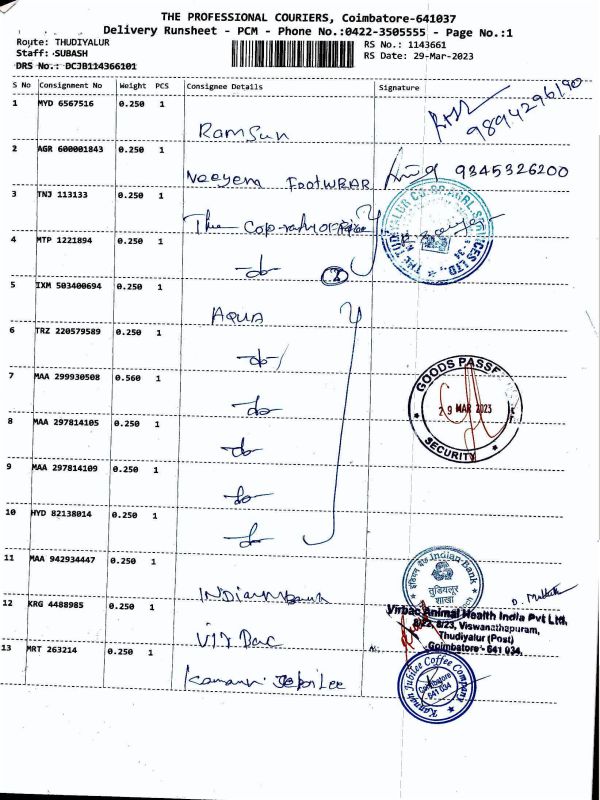 THE PROFESSIONAL COURIERS, Coimbatore-641037
Delivery Runsheet - PCM - Phone No.:0422-3505555 - Page No.:1
Route: THUDIYALUR
Staff: SUBASH
DRS No.: DCJB114366101
RS No.: 1143661
RS Date: 29-Mar-2023
S No Consignment No Weight PCS Consignee Details Signature
1 MYD 6567516 0.250 1
Ramsun
9894296190
2 AGR 600001843 0.250 1
FootWEAR 9345326200
3 TNJ 113133 0.250 1
The
4 MTP 1221894 0.250 1
do 2
5 IXM 503400694 0.250 1
AQUA
6 TRZ 220579589 0.250 1
do
7 MAA 299930508 0.560 1
do
GOODS PASSED
29 MAR 2023
SECURITY
8 MAA 297814105 0.250 1
do
9 MAA 297814109 0.250 1
do
10 HYD 82138014 0.250 1
do
11 MAA 942934447 0.250 1
Indian Bank
इंडियन बैंक Indian Bank
तुडियलूर
शाखा
12 KRG 4488985 0.250 1
Virbac Animal Health India Pvt Ltd,
8/22, 8/23, Viswanathapuram,
Thudiyalur (Post)
Coimbatore - 641 034.
13 MRT 263214 0.250 1
Jubilee Coffee Company
Coimbatore
641 034